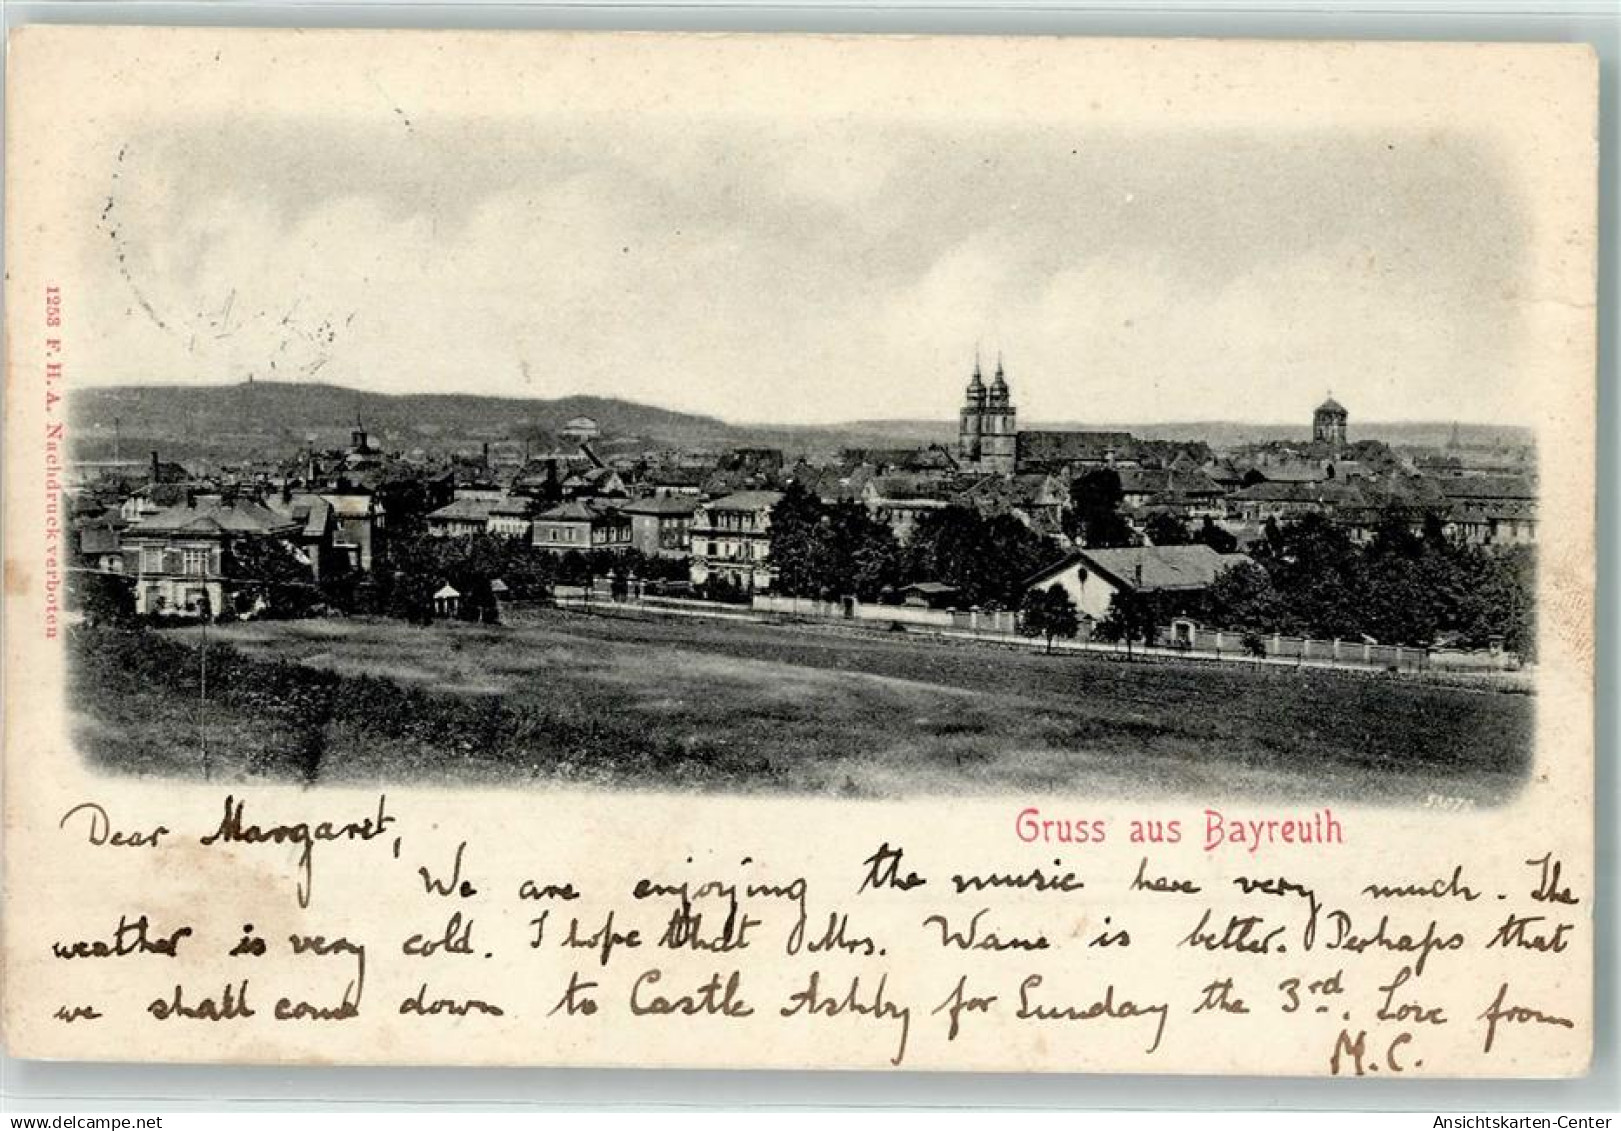 1253 F. H. A. Nachdruck verboten
53072
Gruss aus Bayreuth
Dear Margaret,
We are enjoying the music here very much. The
weather is very cold. I hope that Mrs. Wane is better. Perhaps that
we shall come down to Castle Ashby for Sunday the 3rd. Love from
M.C.
delcampe.net
Ansichtskarten-Center